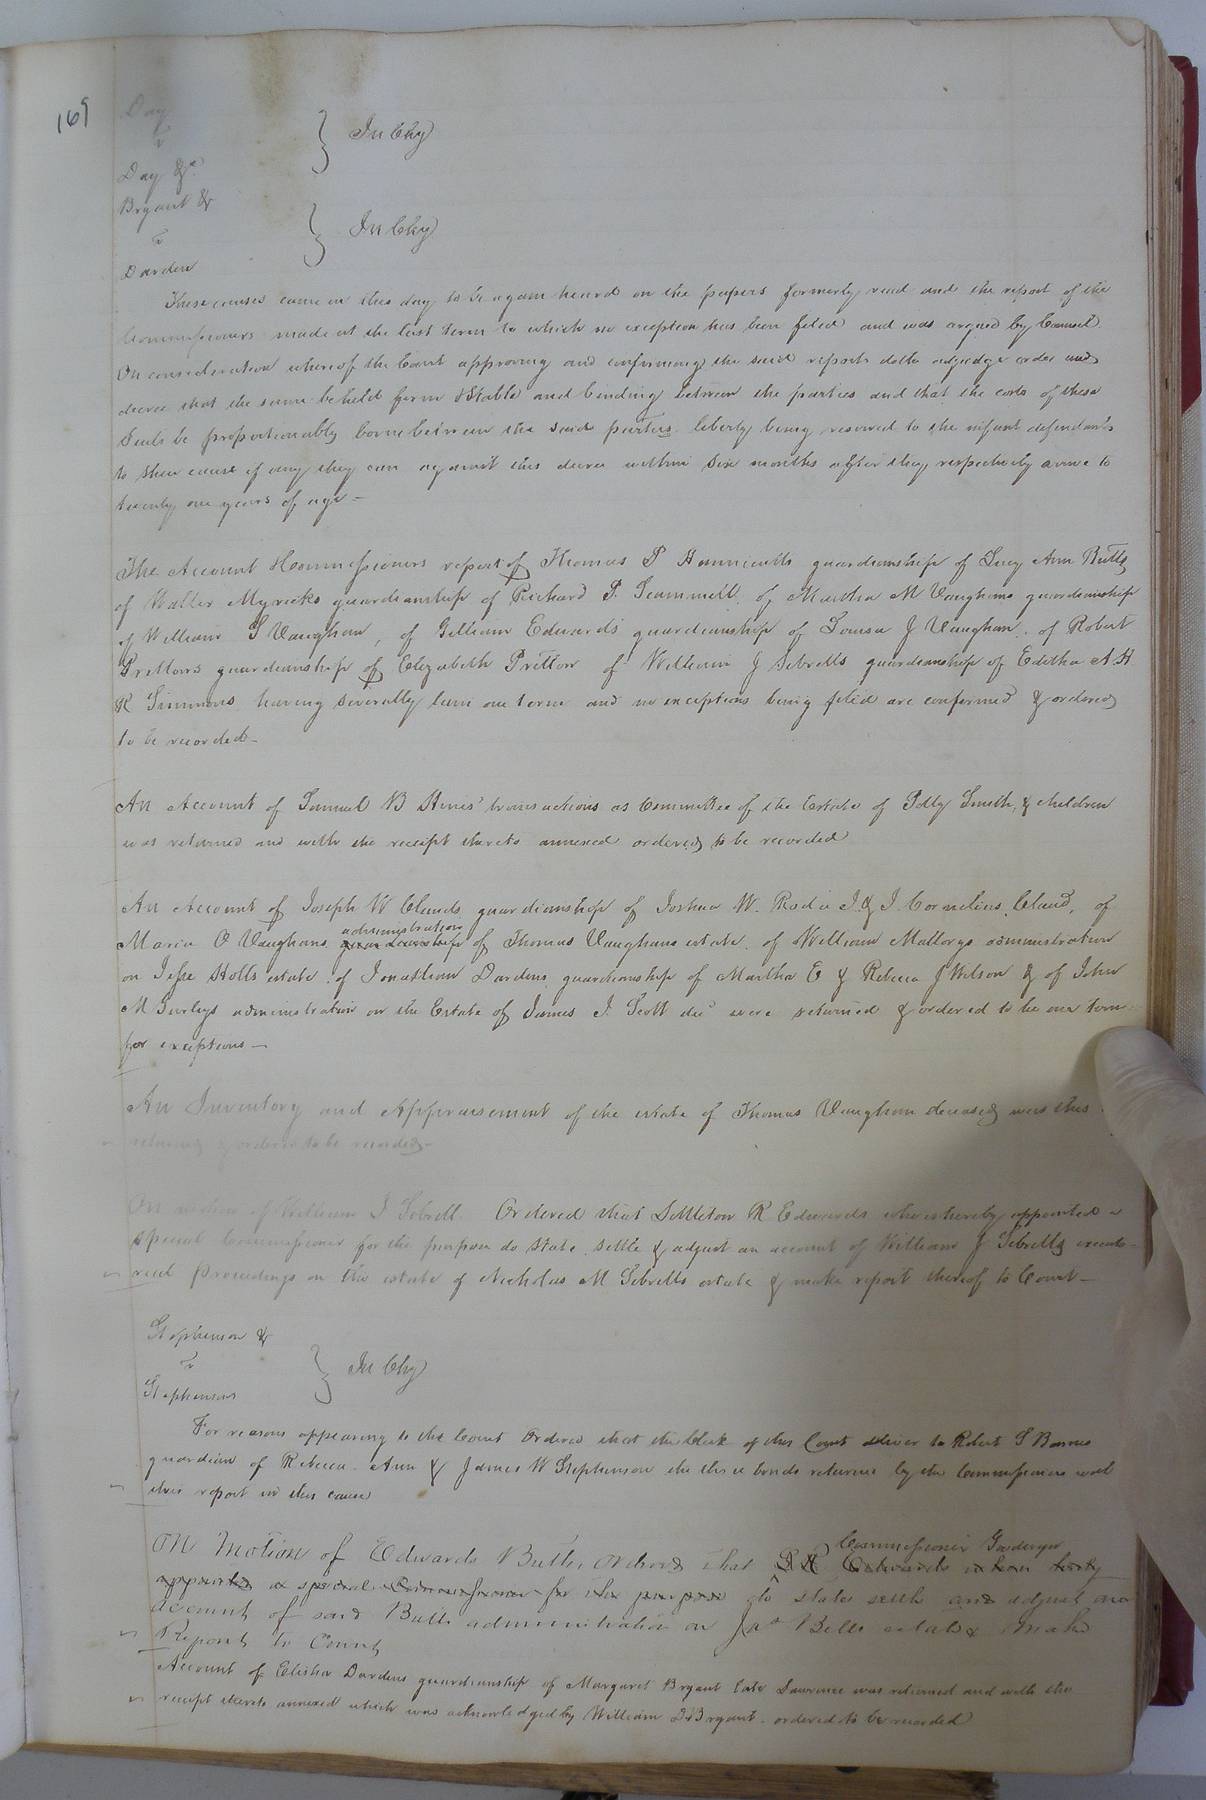 169
Day
v
Day &c
} In Chy
Bryant &
v
Darden
} In Chy
These causes came on this day to be again heard on the papers formerly read and the report of the
Commissioners made at the last term to which no exception has been filed and was argued by Counsel.
On consideration whereof the Court approving and confirming the said reports doth adjudge order and
decree that the same be held firm & Stable and binding between the parties and that the costs of these
Suits be proportionably borne between the said parties. liberty being reserved to the infant defendants
to shew cause if any they can against this decree within six months after they respectively arrive to
twenty one years of age —
The Account Commissioners report of Thomas P Hunnicutts guardianship of Lucy Ann Butts
of Walter Myricks guardianship of Richard P. Scammell, of Martha M Vaughans guardianship
of William S Vaughan, of Gilliam Edwards guardianship of Louisa J Vaughan. of Robert
Prettows guardianship of Elizabeth Pretlow of William J Sebrells guardianship of Editha A H
R Simmons having severally lain one term and no exceptions being filed are confirmed & ordered
to be recorded —
An Account of Samuel B Hines' transactions as Committee of the Estate of Polly Smith, & children
was returned and with the receipt thereto annexed ordered to be recorded
An Account of Joseph W Clauds guardianship of Joshua W. J. & J. Cornelius Claud, of
administration
Maria O Vaughans guardianship of Thomas Vaughans estate. of William Mallorys administration
on Jesse Holts estate. of Jonathan Dardens guardianship of Martha E & Rebecca J Wilson & of John
M Gurleys administration on the Estate of James J. Scott decd were returned & ordered to lie one term
for exceptions —
An Inventory and Appraisement of the estate of Thomas Vaughan deceased was this
returned & ordered to be recorded —
On motion of William J Sebrell. Ordered that Littleton R Edwards who is hereby appointed a
special Commissioner for the purpose do state settle & adjust an account of William J Sebrells executo-
rial proceedings on the estate of Nicholas M Sebrells estate & make report thereof to Court —
Stephenson &
v
Stephensons
} In Chy
For reasons appearing to the Court Ordered that the Clerk of this Court deliver to Robert S Barnes
guardian of Rebecca Ann & James W Stephenson the three bonds returned by the Commissioners with
their report in this cause
Commissioner
On Motion of Edwards Butts, ordered that L R Edwards is here by
appointed a special Commissioner for the purpose do state settle and adjust an
account of said Butts administration on Jas Bells estate & make
Report to Court
Account of Elisha Dardens guardianship of Margaret Bryant late Lawrence was returned and with the
receipt thereto annexed which was acknowledged by William Bryant. ordered to be recorded